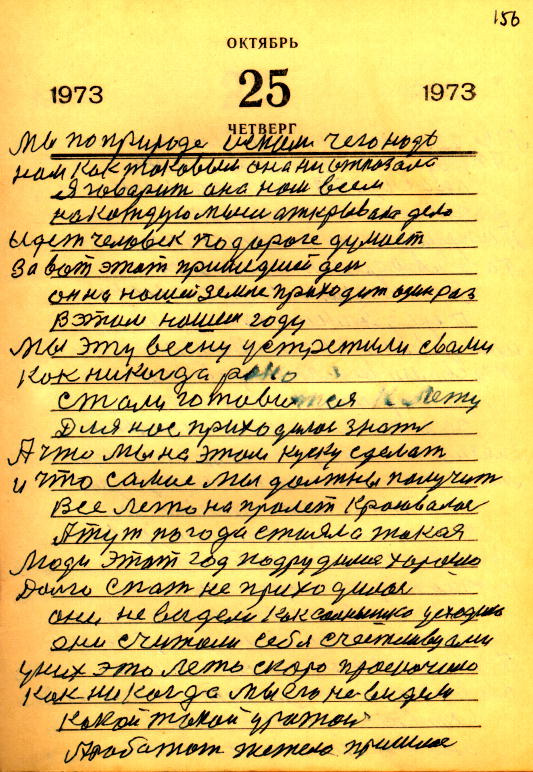 156
ОКТЯБРЬ
1973 25 1973
ЧЕТВЕРГ
Мы по природе ищем чего надо
нам как таковым она ни отказала
Я говарит она нам всем
на каждую мыси открывала дело
Ыдет человек по дороге думает
За вот этот пришедший ден
он на нашей земле приходит один раз
В этом нашем году
Мы эту весну устретили свами
Как никогда рано
стали готовится к лету
Для нас приходилос знать
А что мы на этом куску сделаем
и что самое мы должны получит
Все лето на пролет
А тут погода стояла такая
Люди этот год подрудилис харошо
Долго спат не приходилос
они не видели как солнышко уходило
они считали себя счастливцами
у них это лето скоро проскочило
Как никогда мы его не видели
Какой такой уражай
Поработат тежело пришлос